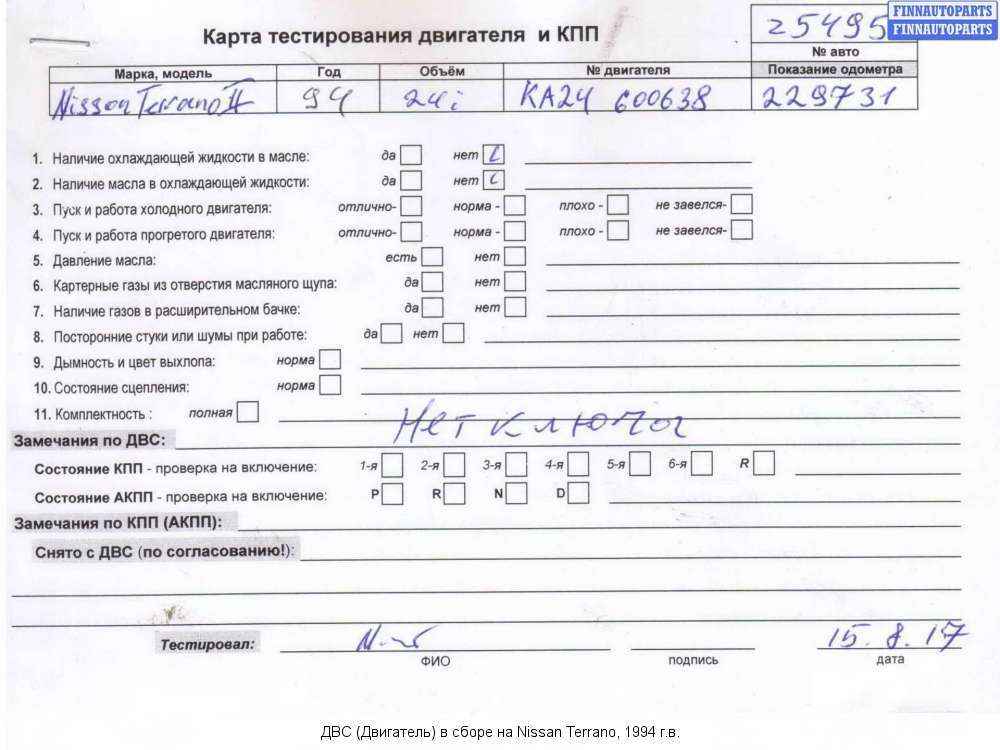 FINNAUTOPARTS
FINNAUTOPARTS
25495
Карта тестирования двигателя и КПП
№ авто
Марка, модель Год Объём № двигателя Показание одометра
Nisson Terrano II 94 24i KA24 600638 229731
1. Наличие охлаждающей жидкости в масле: да нет
2. Наличие масла в охлаждающей жидкости: да нет
3. Пуск и работа холодного двигателя: отлично- норма - плохо - не завелся-
4. Пуск и работа прогретого двигателя: отлично- норма - плохо - не завелся-
5. Давление масла: есть нет
6. Картерные газы из отверстия масляного щупа: да нет
7. Наличие газов в расширительном бачке: да нет
8. Посторонние стуки или шумы при работе: да нет
9. Дымность и цвет выхлопа: норма
10. Состояние сцепления: норма
11. Комплектность : полная
Замечания по ДВС: Нет ключа
Состояние КПП - проверка на включение: 1-я 2-я 3-я 4-я 5-я 6-я R
Состояние АКПП - проверка на включение: P R N D
Замечания по КПП (АКПП):
Снято с ДВС (по согласованию!):
Тестировал: 15.8.17
ФИО подпись дата
ДВС (Двигатель) в сборе на Nissan Terrano, 1994 г.в.